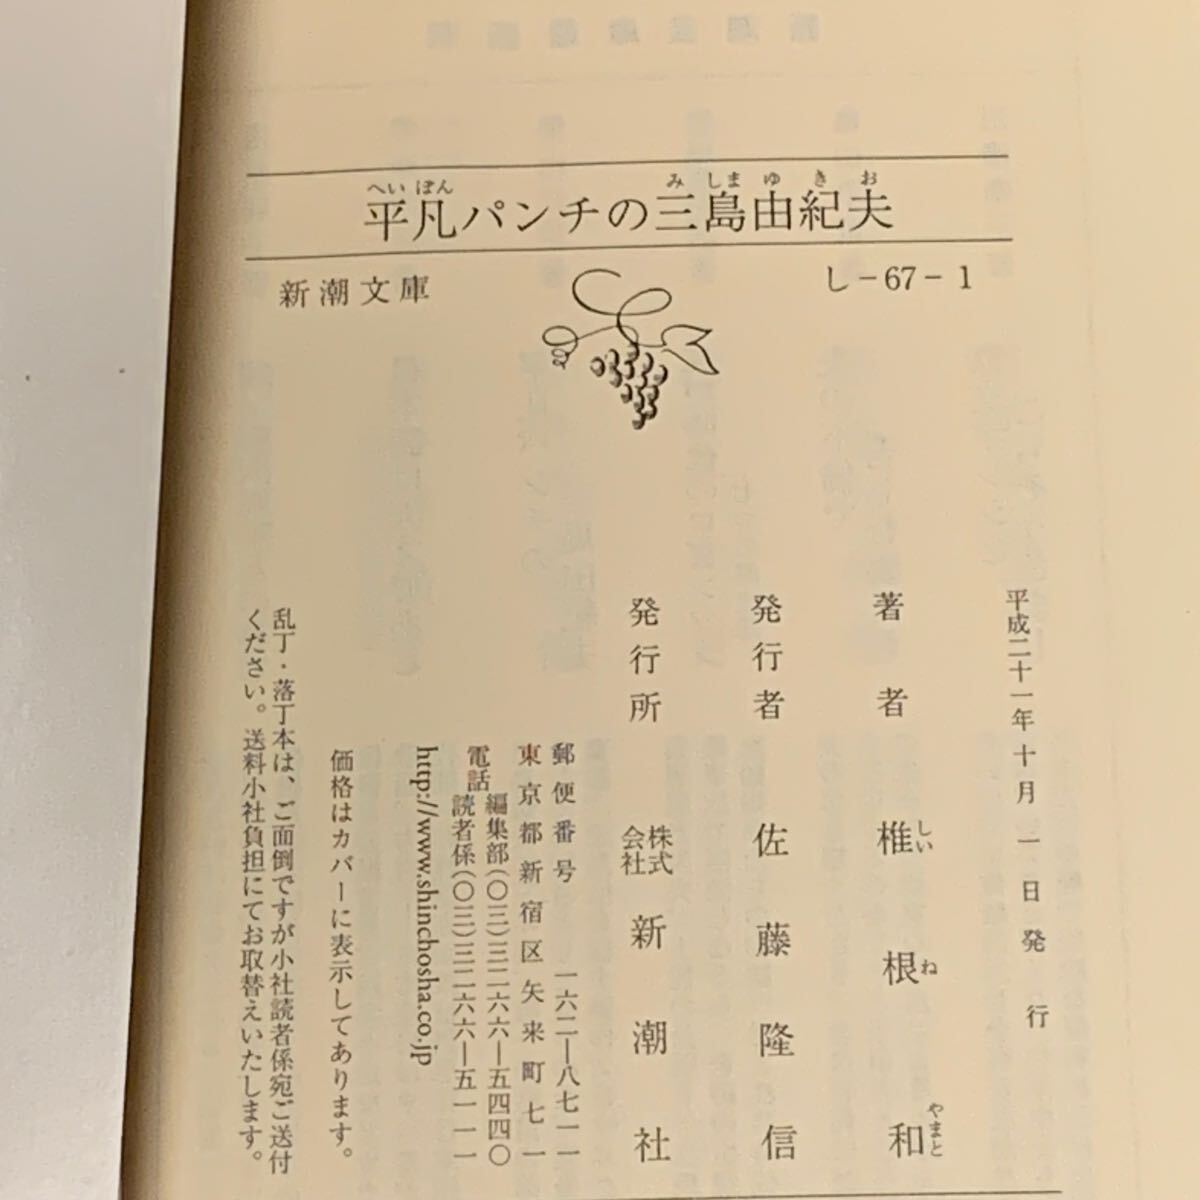 平凡パンチの三島由紀夫
へいぼん
みしまゆきお
新潮文庫
し-67-1
平成二十一年十月一日発行
著者 椎根和
しいねやまと
発行者 佐藤隆信
発行所 株式会社 新潮社
郵便番号 一六二―八七一一
東京都新宿区矢来町七一
電話 編集部(〇三)三二六六―五四四〇
読者係(〇三)三二六六―五一一一
http://www.shinchosha.co.jp
価格はカバーに表示してあります。
乱丁・落丁本は、ご面倒ですが小社読者係宛ご送付
ください。送料小社負担にてお取替えいたします。